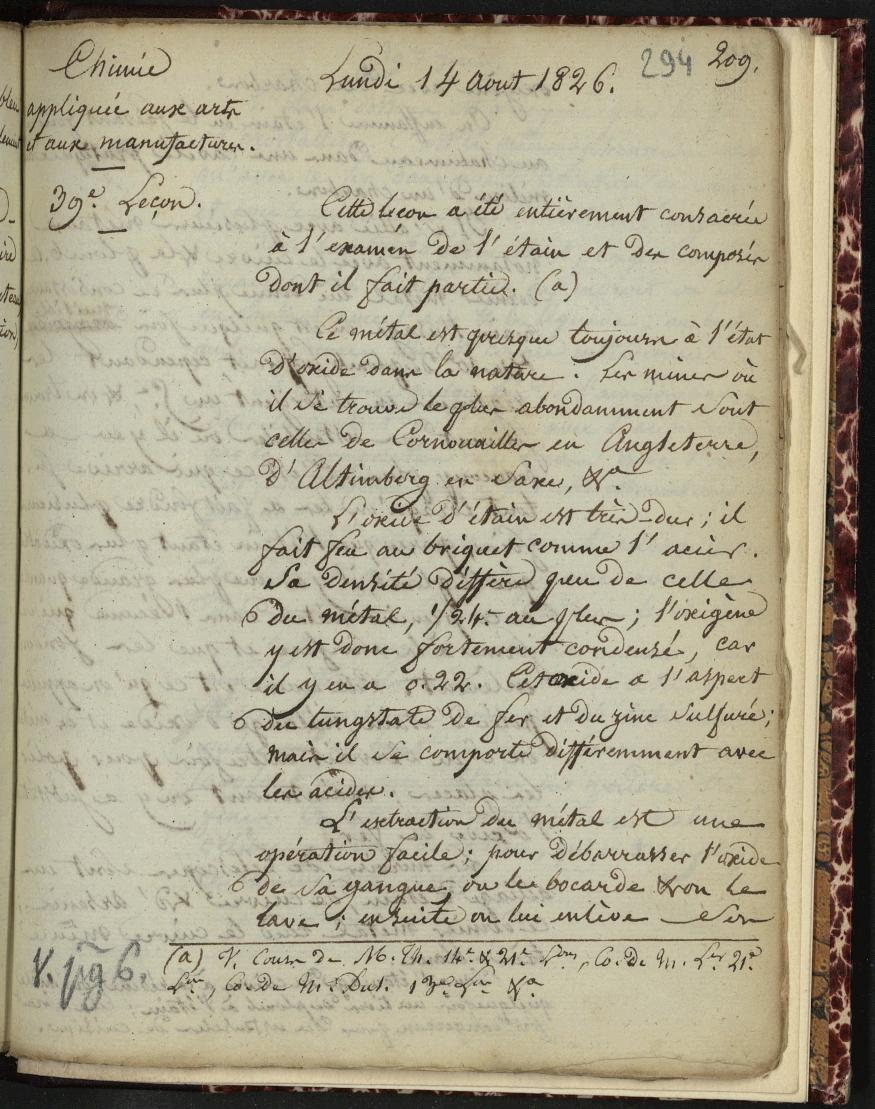 Chimie
appliquée aux arts
et aux manufactures.
39e. Leçon.
Lundi 14 Aout 1826.
294
209.
Cette leçon a été entièrement consacrée
à l'examen de l'étain et des composés
dont il fait partie. (a)
Ce métal est presque toujours à l'état
d'oxide dans la nature. Les mines où
il se trouve le plus abondamment sont
celles de Cornouailles en Angleterre,
d'Altimberg en Saxe, &a.
L'oxide d'étain est très-dur; il
fait feu au briquet comme l'acier.
Sa densité diffère peu de celle
du métal, 1/24e. au plus; l'oxigène
y est donc fortement condensé, car
il y en a 0.22. Cet oxide a l'aspect
du tungstate de fer et du zinc sulfuré;
mais il se comporte différemment avec
les acides.
L'extraction du métal est une
opération facile; pour débarrasser l'oxide
de sa gangue, on le bocarde & on le
lave; ensuite on lui enlève son
(a) V. Cours de M. Th. 14e. & 21e. Lons, Co. de M. 21e.
Lon, Co. de M. 13e. Lon &a
V. pg 6.